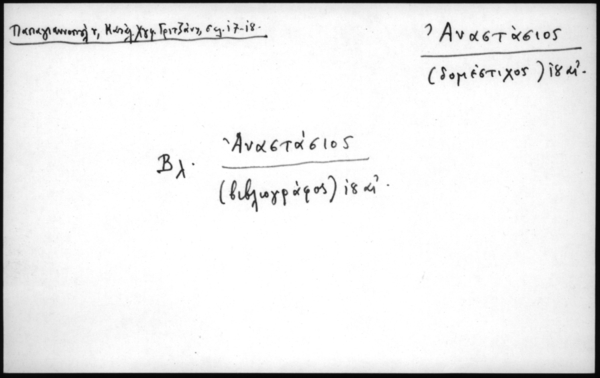 Παπαγιαννοπούλου, Κατάλ. Χφφ. Γριτζάνη, σσ. 17-18.
Ἀναστάσιος
(δομέστιχος) ιη αἰ.
Βλ. Ἀναστάσιος
(βιβλιογράφος) ιη αἰ.